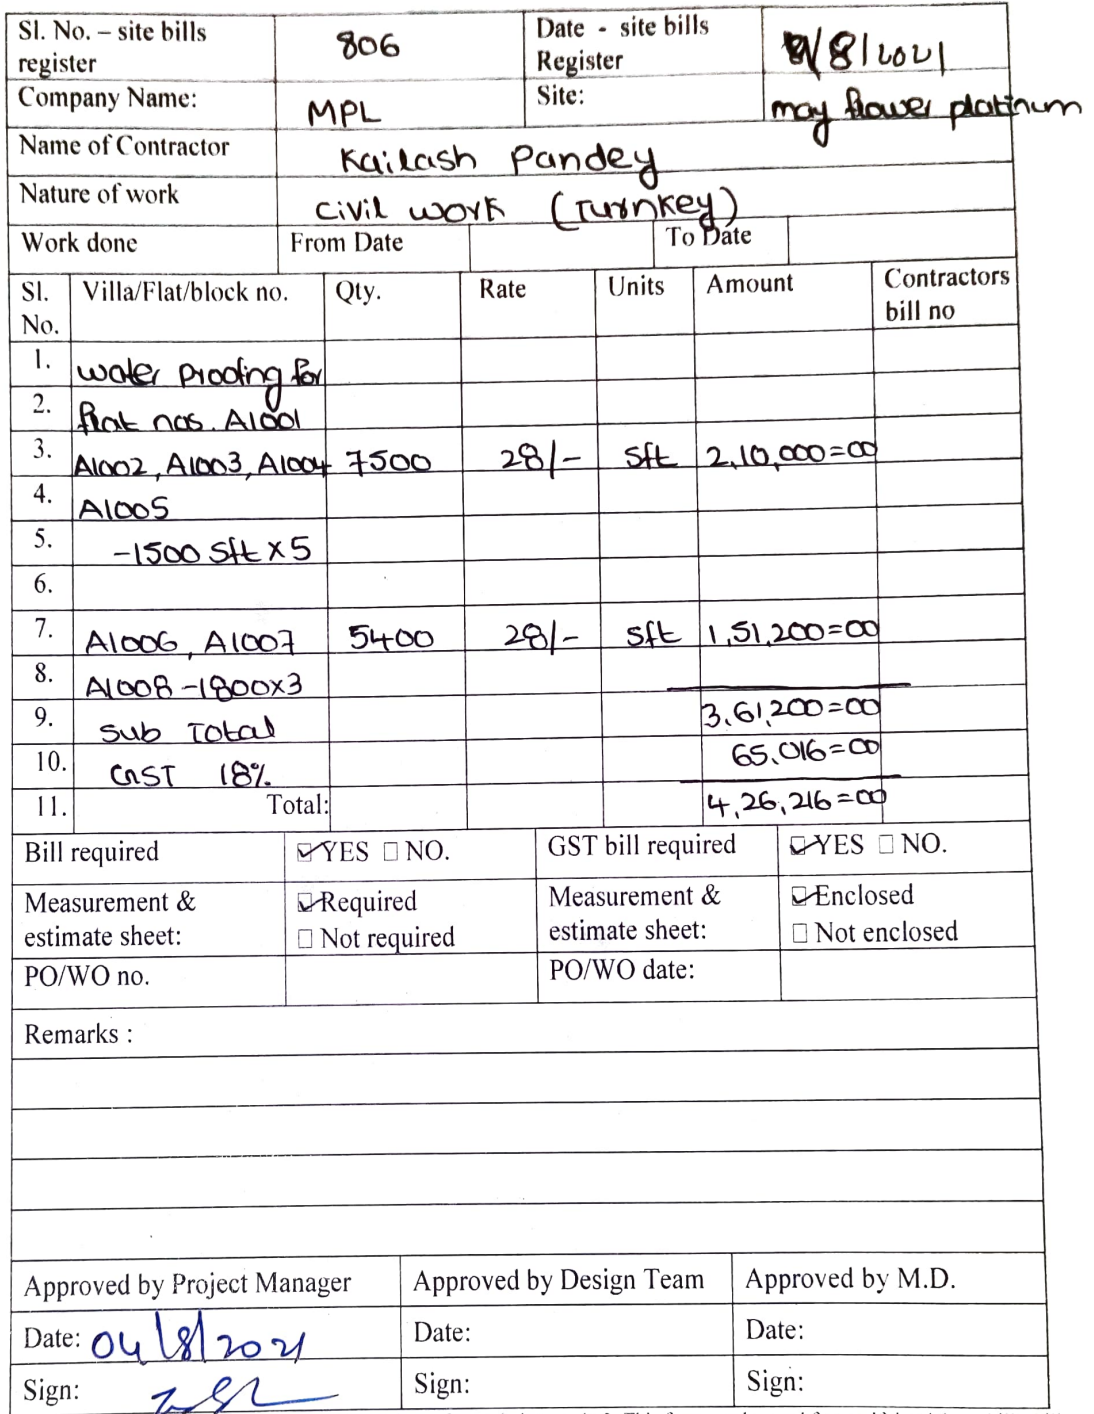 Sl. No. – site bills register 806 Date - site bills Register /8/2021
Company Name: MPL Site: may flower platinum
Name of Contractor Kailash Pandey
Nature of work Civil work (Turnkey)
Work done From Date To Date
Sl. No. Villa/Flat/block no. Qty. Rate Units Amount Contractors bill no
1. water proofing for
2. flat nos. A1001
3. A1002, A1003, A1004 7500 28/- sft 2,10,000=00
4. A1005
5. -1500 sft x 5
6.
7. A1006, A1007 5400 28/- sft 1,51,200=00
8. A1008 -1800x3
9. Sub Total 3,61,200=00
10. GST 18% 65,016=00
11. Total: 4,26,216=00
Bill required ☑YES ☐ NO. GST bill required ☑YES ☐ NO.
Measurement & estimate sheet: ☑Required ☐ Not required Measurement & estimate sheet: ☑Enclosed ☐ Not enclosed
PO/WO no. PO/WO date:
Remarks :
Approved by Project Manager Approved by Design Team Approved by M.D.
Date: 04/8/2021 Date: Date:
Sign: Sign: Sign: